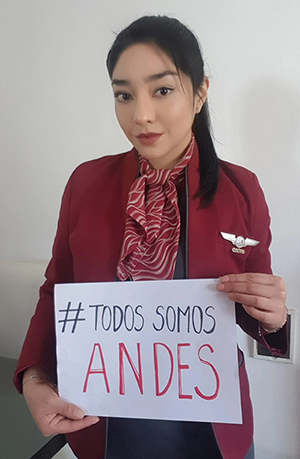 # TODOS SOMOS
ANDES